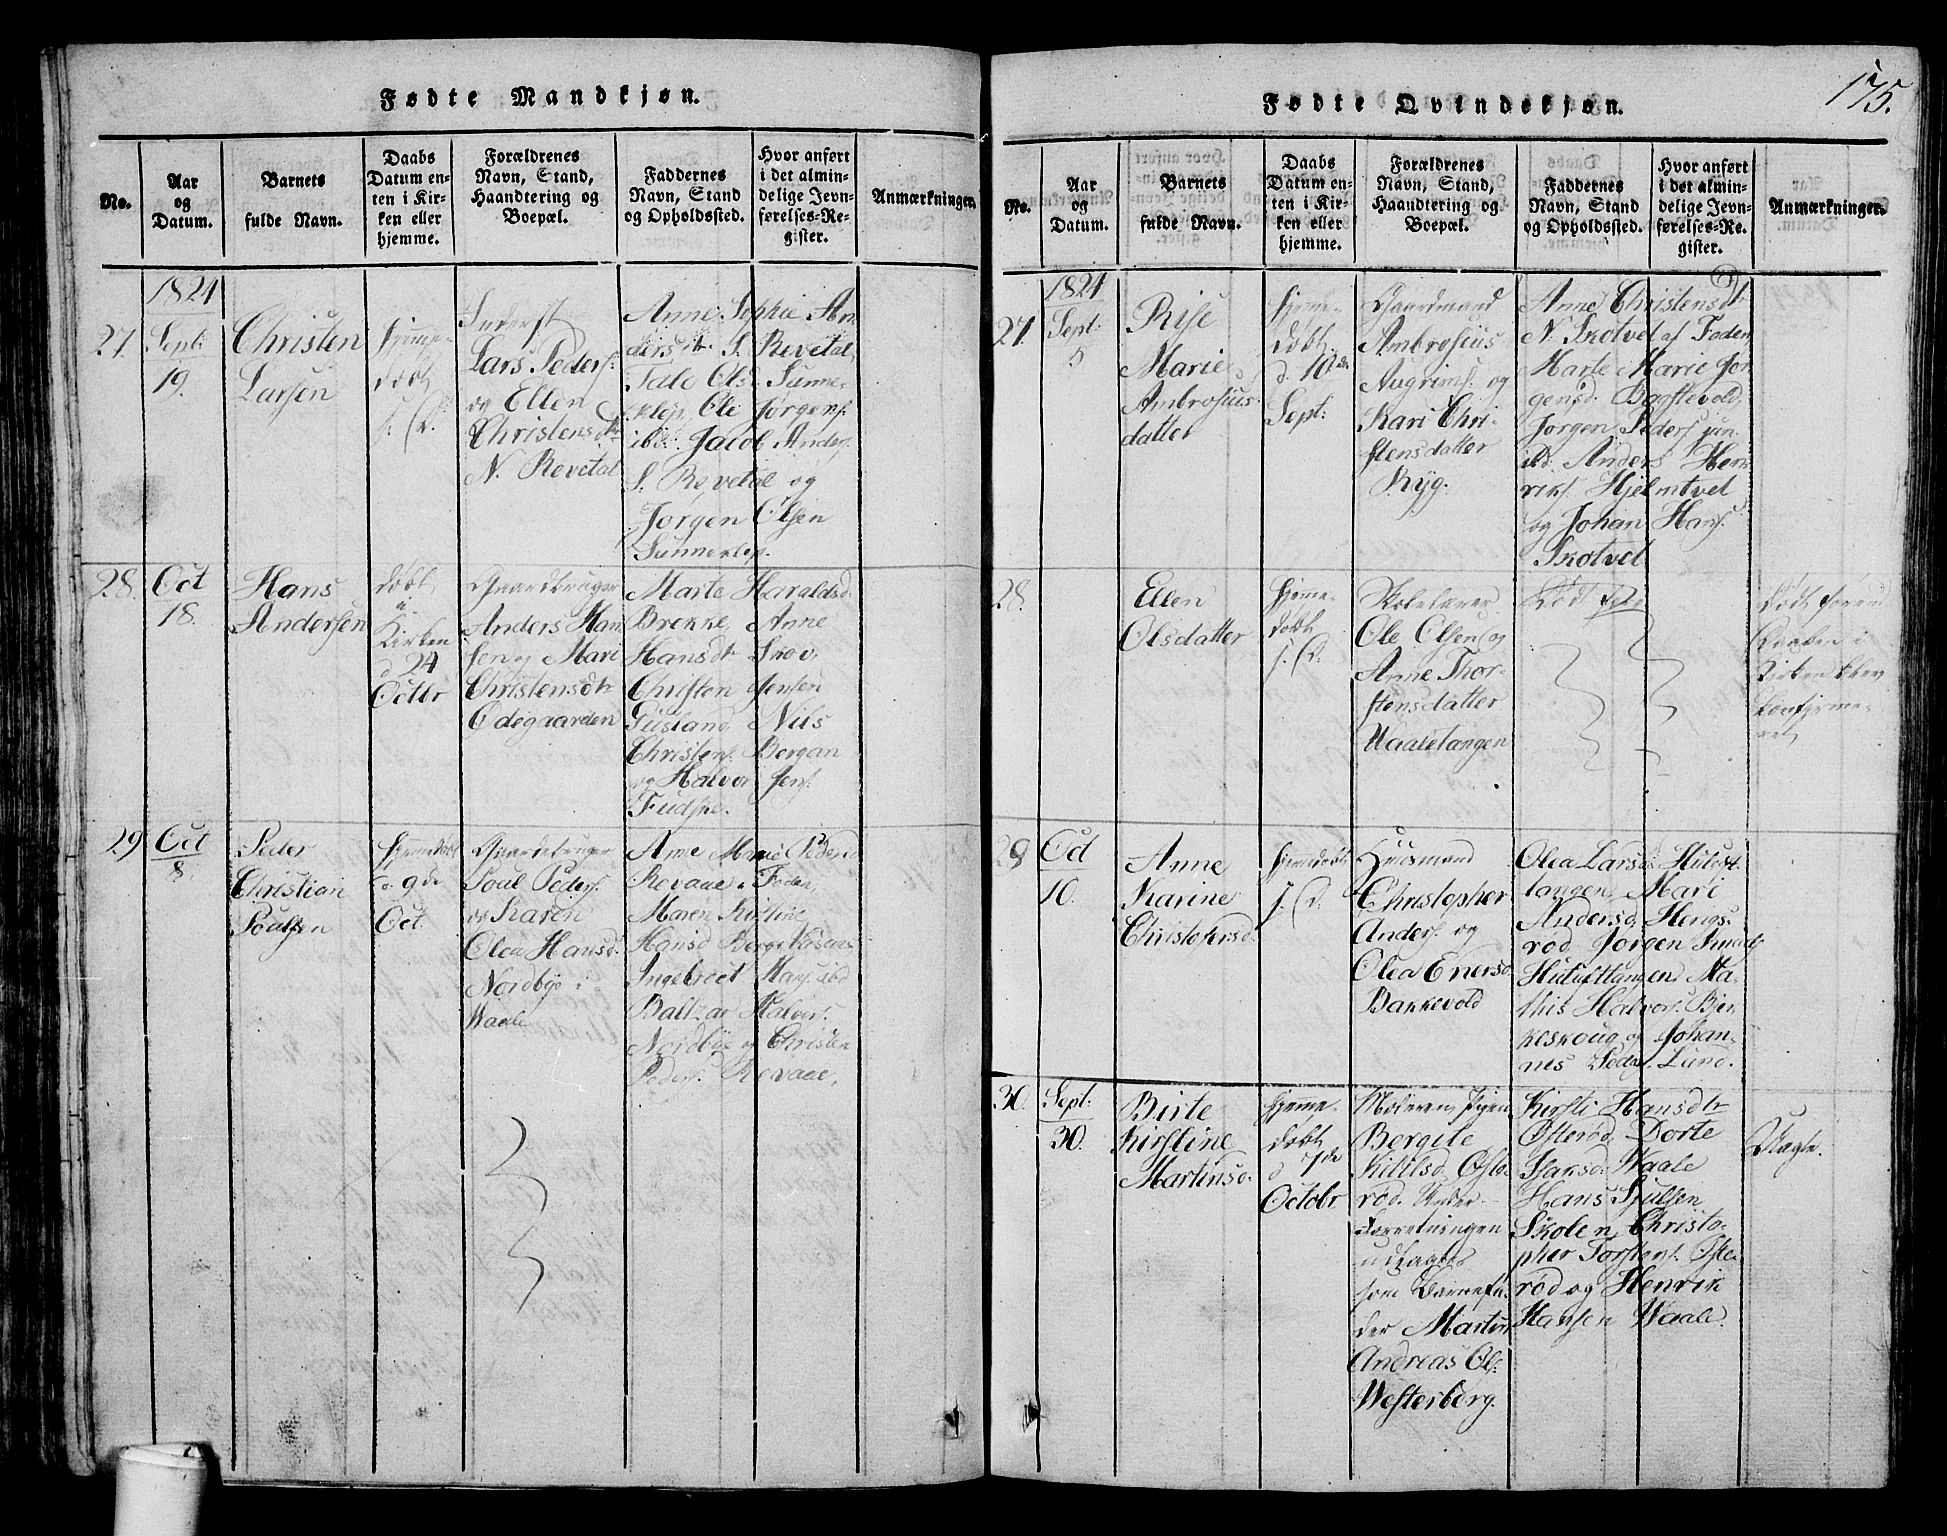 175.
Fødte Mandkjøn.
No.
Aar
og
Datum.
Barnets
fulde Navn.
Daabs
Datum en-
ten i Kir-
ken eller
hjemme.
Forældrenes
Navn, Stand,
Haandtering og
Boepæl.
Faddernes
Navn, Stand
og Opholdssted.
Hvor anført
i det almin-
delige Jevn-
førelses-Re-
gister.
Anmærkninger.
27.
1824
Sept:
19.
Christen
Larsen
Hjemme-
døbt
Inderst
Lars Peders:
og Ellen
Christensdtr
N. Revetal
Anne Sophie An-
dersdtr S. Revetal,
Tale Ols. Sunne-
klep, Ole Jørgens.
ibd: Jacob Anders.
S. Revetal og
Jørgen Olsen
Sunneklep.
28.
Oct
18.
Hans
Andersen
døbt
i
Kirken
d 24
Octbr
Gaardbruger
Anders Han
sen og Mari
Christensdtr
Odegaarden
Marte Haraldsd.
Brekke, Anne
Hansdtr Skov,
Christen Jensen
Gusland, Nils
Christens. Bergan
og Halvor Jens.
Fudske.
29
Oct
8.
Peder
Christian
Poulsen
Hjemdøbt
9de
Oct.
Gaardbruger
Poul Peders.
og Karen
Olea Hansd.
Nordbye i
Waale
Anne Marie Pedersd
Revaae, Faden,
Maren Kirstine
Hansd Berge
Ingebreet Hans. ibd
Baltzar Halvors.
Nordbye og Christen
Peders. Revaae,
Fødte Qvindekjøn.
No.
Aar
og
Datum.
Barnets
fulde Navn.
Daabs
Datum en-
ten i Kir-
ken eller
hjemme.
Forældrenes
Navn, Stand,
Haandtering og
Boepæl.
Faddernes
Navn, Stand
og Opholdssted.
Hvor anført
i det almin-
delige Jevn-
førelses-Re-
gister.
Anmærkninger.
27.
1824
Sept:
5
Rise
Marie
Ambrosius-
datter
Hjemme-
døbt
d. 10de
Sept:
Gaardmand
Ambrosius
Augrims. og
Kari Chri-
stensdatter
Ryg.
Anne Christensdtr
N. Skotvet af Faden
Marte Marie Jør
gensd. Bagstevold
Jørgen Peders jun
ibd. Anders Hen
riks. Hjelmtvet
og Johan Hans.
Skotvet
28.
Ellen
Olsdatter
Hjemme-
døbt
Skolelærer
Ole Olsen og
Anne Thor-
stensdatter
Waaletangen
Død
Død førend
Daaben i
Kirken blev
Confirme-
ret
29
Oct
10.
Anne
Karine
Christofersd.
Hjemdøbt
Huusmand
Christopher
Anders. og
Olea Enersd.
Bakkevold
Olea Larsd.
tangen, Mari
Andersd. Hengs-
rød, Jørgen Knuds.
Ma-
this Halvors. Bjer
keskoug og Johan-
nes Peders. Lund.
30.
Sept:
30.
Birte
Kirstine
Martinsd.
Hjemme-
døbt
d 7de
Octobr
Pigen
Bergite
Kittilsd. Øste-
rød. Under
Forretningen
udlagdes
som Barnefa-
der Martin
Andreas Ols.
Westerberg.
Kirsti Hansdtr
Østerød, Dorte
Isaksd. Waale
Hans Sjulsen
Skolen, Christo-
pher Torstens. Øste-
rød og Henrik
Hansen Waale.
Uægte.